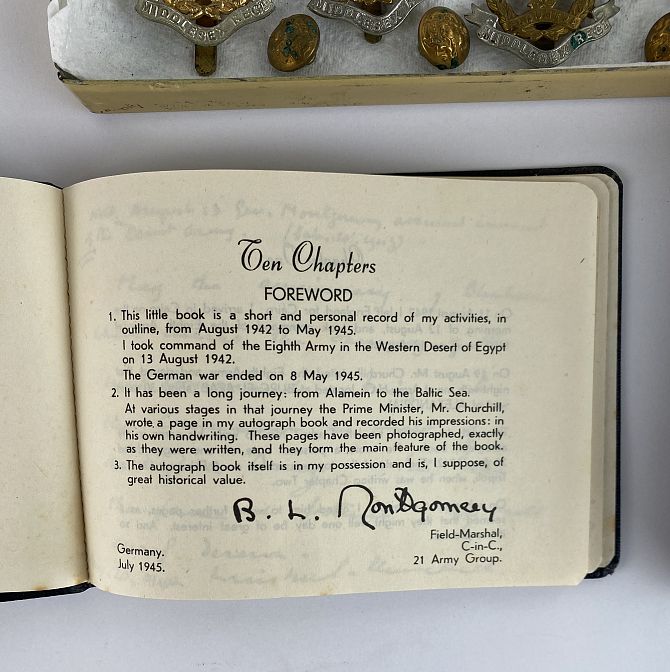 MIDDLESEX REGT
MIDDLESEX REGT
MIDDLESEX REGT
Ten Chapters
FOREWORD
1. This little book is a short and personal record of my activities, in
outline, from August 1942 to May 1945.
I took command of the Eighth Army in the Western Desert of Egypt
on 13 August 1942.
The German war ended on 8 May 1945.
2. It has been a long journey: from Alamein to the Baltic Sea.
At various stages in that journey the Prime Minister, Mr. Churchill,
wrote a page in my autograph book and recorded his impressions: in
his own handwriting. These pages have been photographed, exactly
as they were written, and they form the main feature of the book.
3. The autograph book itself is in my possession and is, I suppose, of
great historical value.
B. L. Montgomery
Field-Marshal,
C-in-C.,
21 Army Group.
Germany.
July 1945.